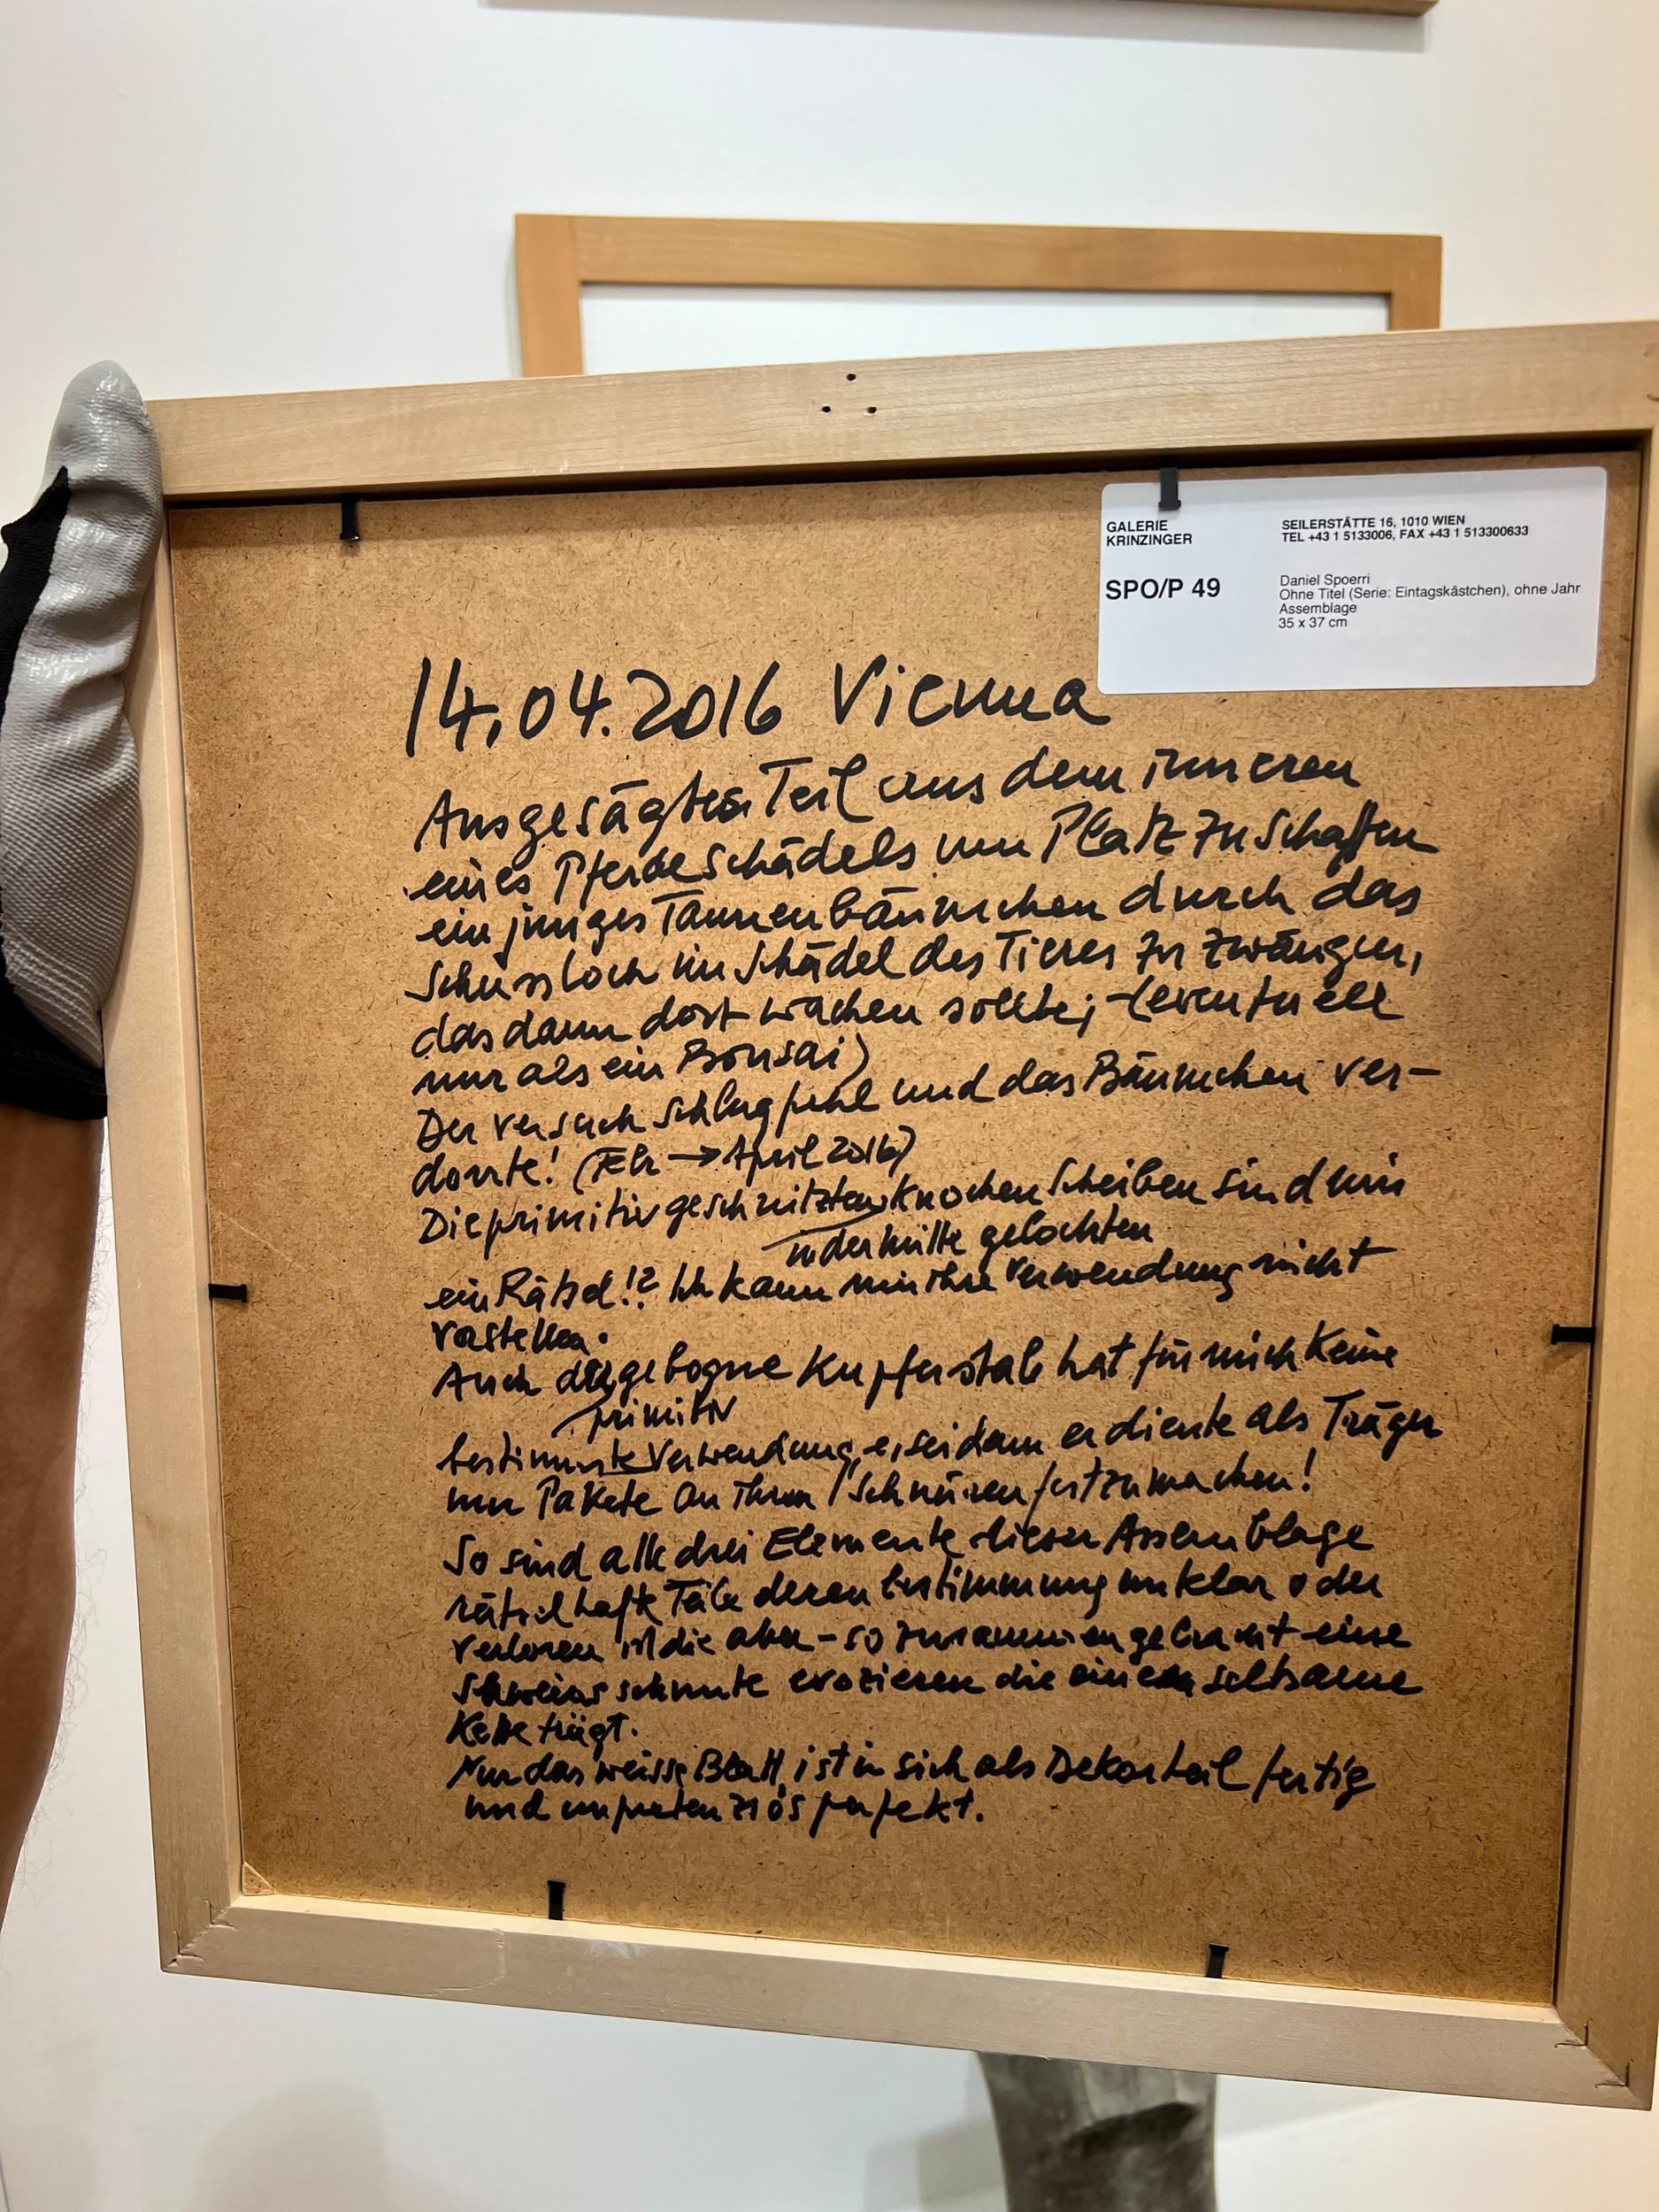 GALERIE
KRINZINGER
SEILERSTÄTTE 16, 1010 WIEN
TEL +43 1 5133006, FAX +43 1 513300633
SPO/P 49
Daniel Spoerri
Ohne Titel (Serie: Eintagskästchen), ohne Jahr
Assemblage
35 x 37 cm
14.04.2016 Vienna
Ausgesägter Teil aus dem inneren
eines Pferdeschädels um Platz zu schaffen
ein junges Tannenbäumchen durch das
Schussloch im Schädel des Tieres zu zwängen,
das dann dort wachen sollte; – (eventuell
nur als ein Bonsai)
Der versuch schlug fehl und das Bäumchen ver-
dorrte! (Feb → April 2016)
Die primitiv geschnitzten Knochen Scheiben sind mir
in der mitte gelochten
ein Rätsel!? Ich kann mir ihre Verwendung nicht
vorstellen.
Auch der gebogne Kupferstab hat für mich Keine
primitiv
bestimmte Verwendung, es sei denn er diente als Träger
um Pakete an ihren Schnüren festzumachen!
So sind alle drei Elemente dieser Assemblage
rätselhafte Teile deren bestimmung unklar oder
verloren ist die aber – so zusammen gebracht eine
Schweinsschnute evozieren die eine seltsame
Kette trägt.
Nur das weisse Blatt, ist in sich als Dekorteil fertig
und unpretenziös perfekt.